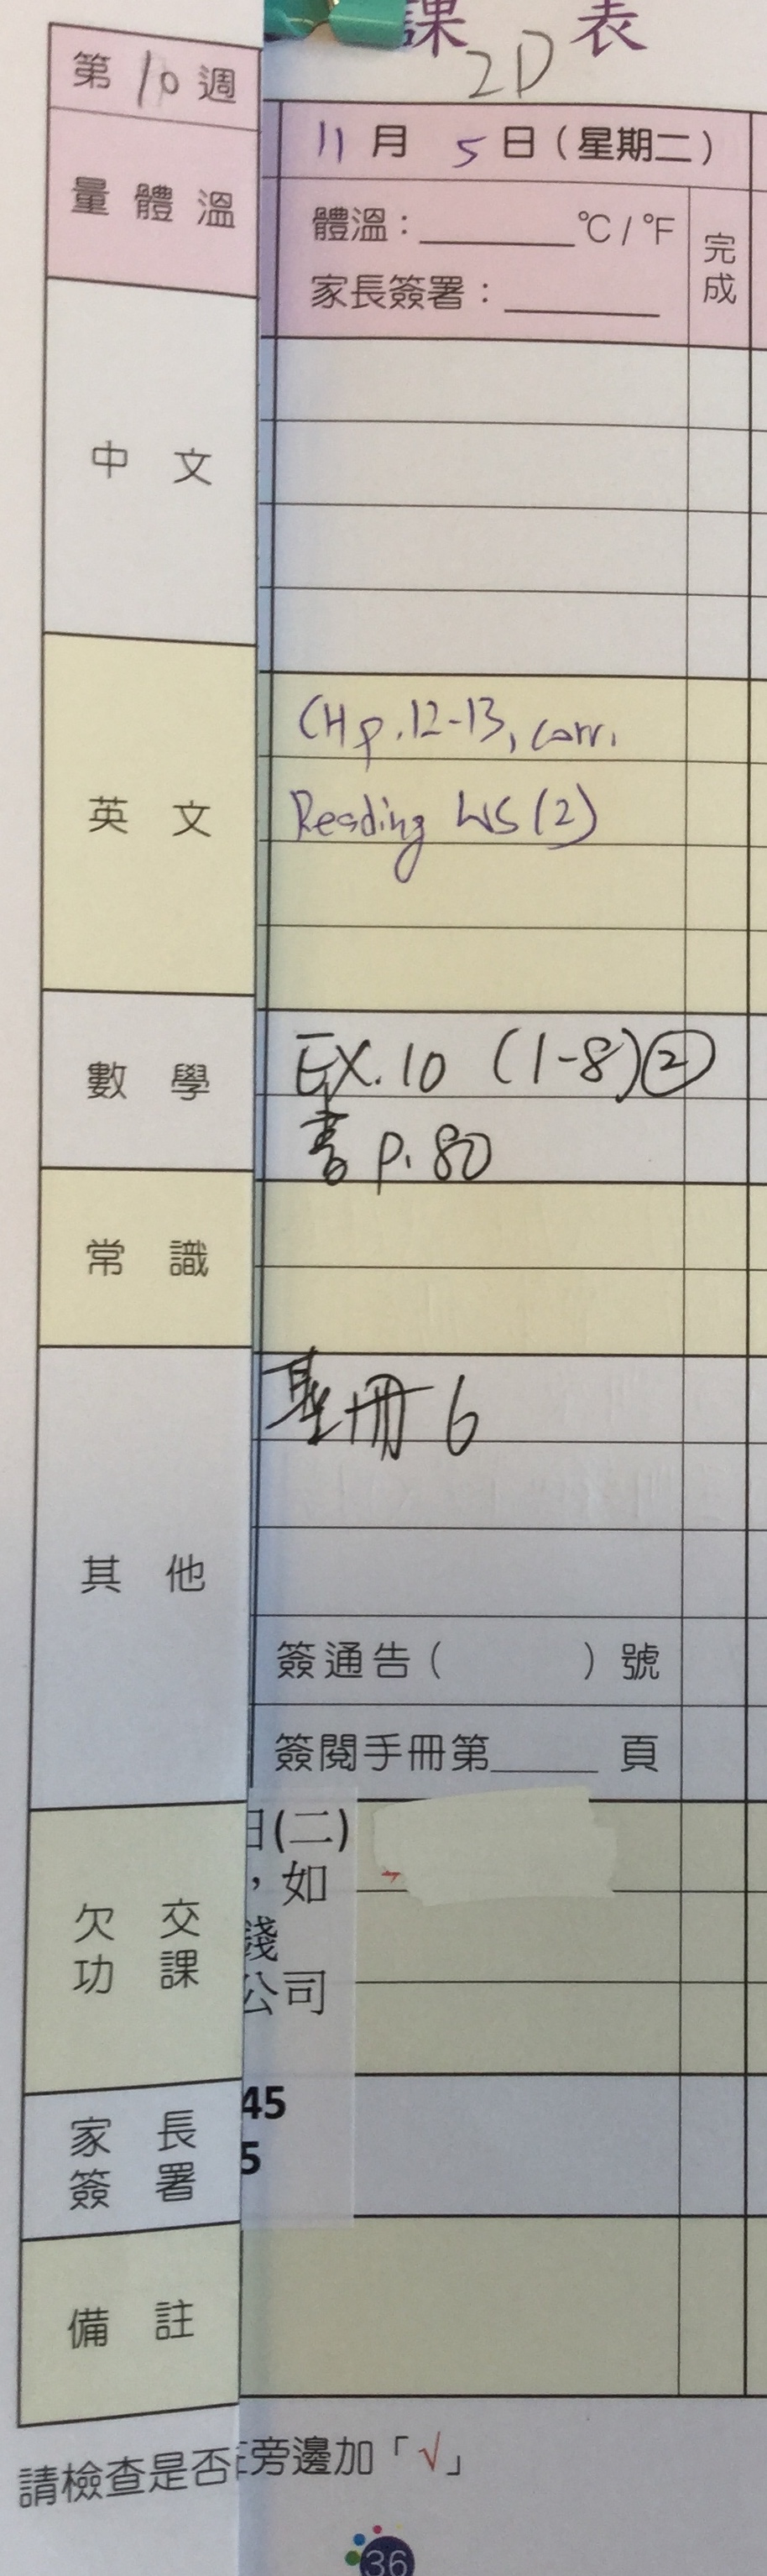 課表
2D
第10週
11月5日(星期二)
量體溫
體溫:______°C/°F
家長簽署:______
完成
中文
英文
CH p.12-13, corr.
Reading WS(2)
數學
EX.10 (1-8)②
書 p.80
常識
其他
聖冊6
簽通告( )號
簽閱手冊第____頁
欠交功課
日(二)
,如
錢
公司
家長簽署
45
5
備註
請檢查是否
旁邊加「√」
36